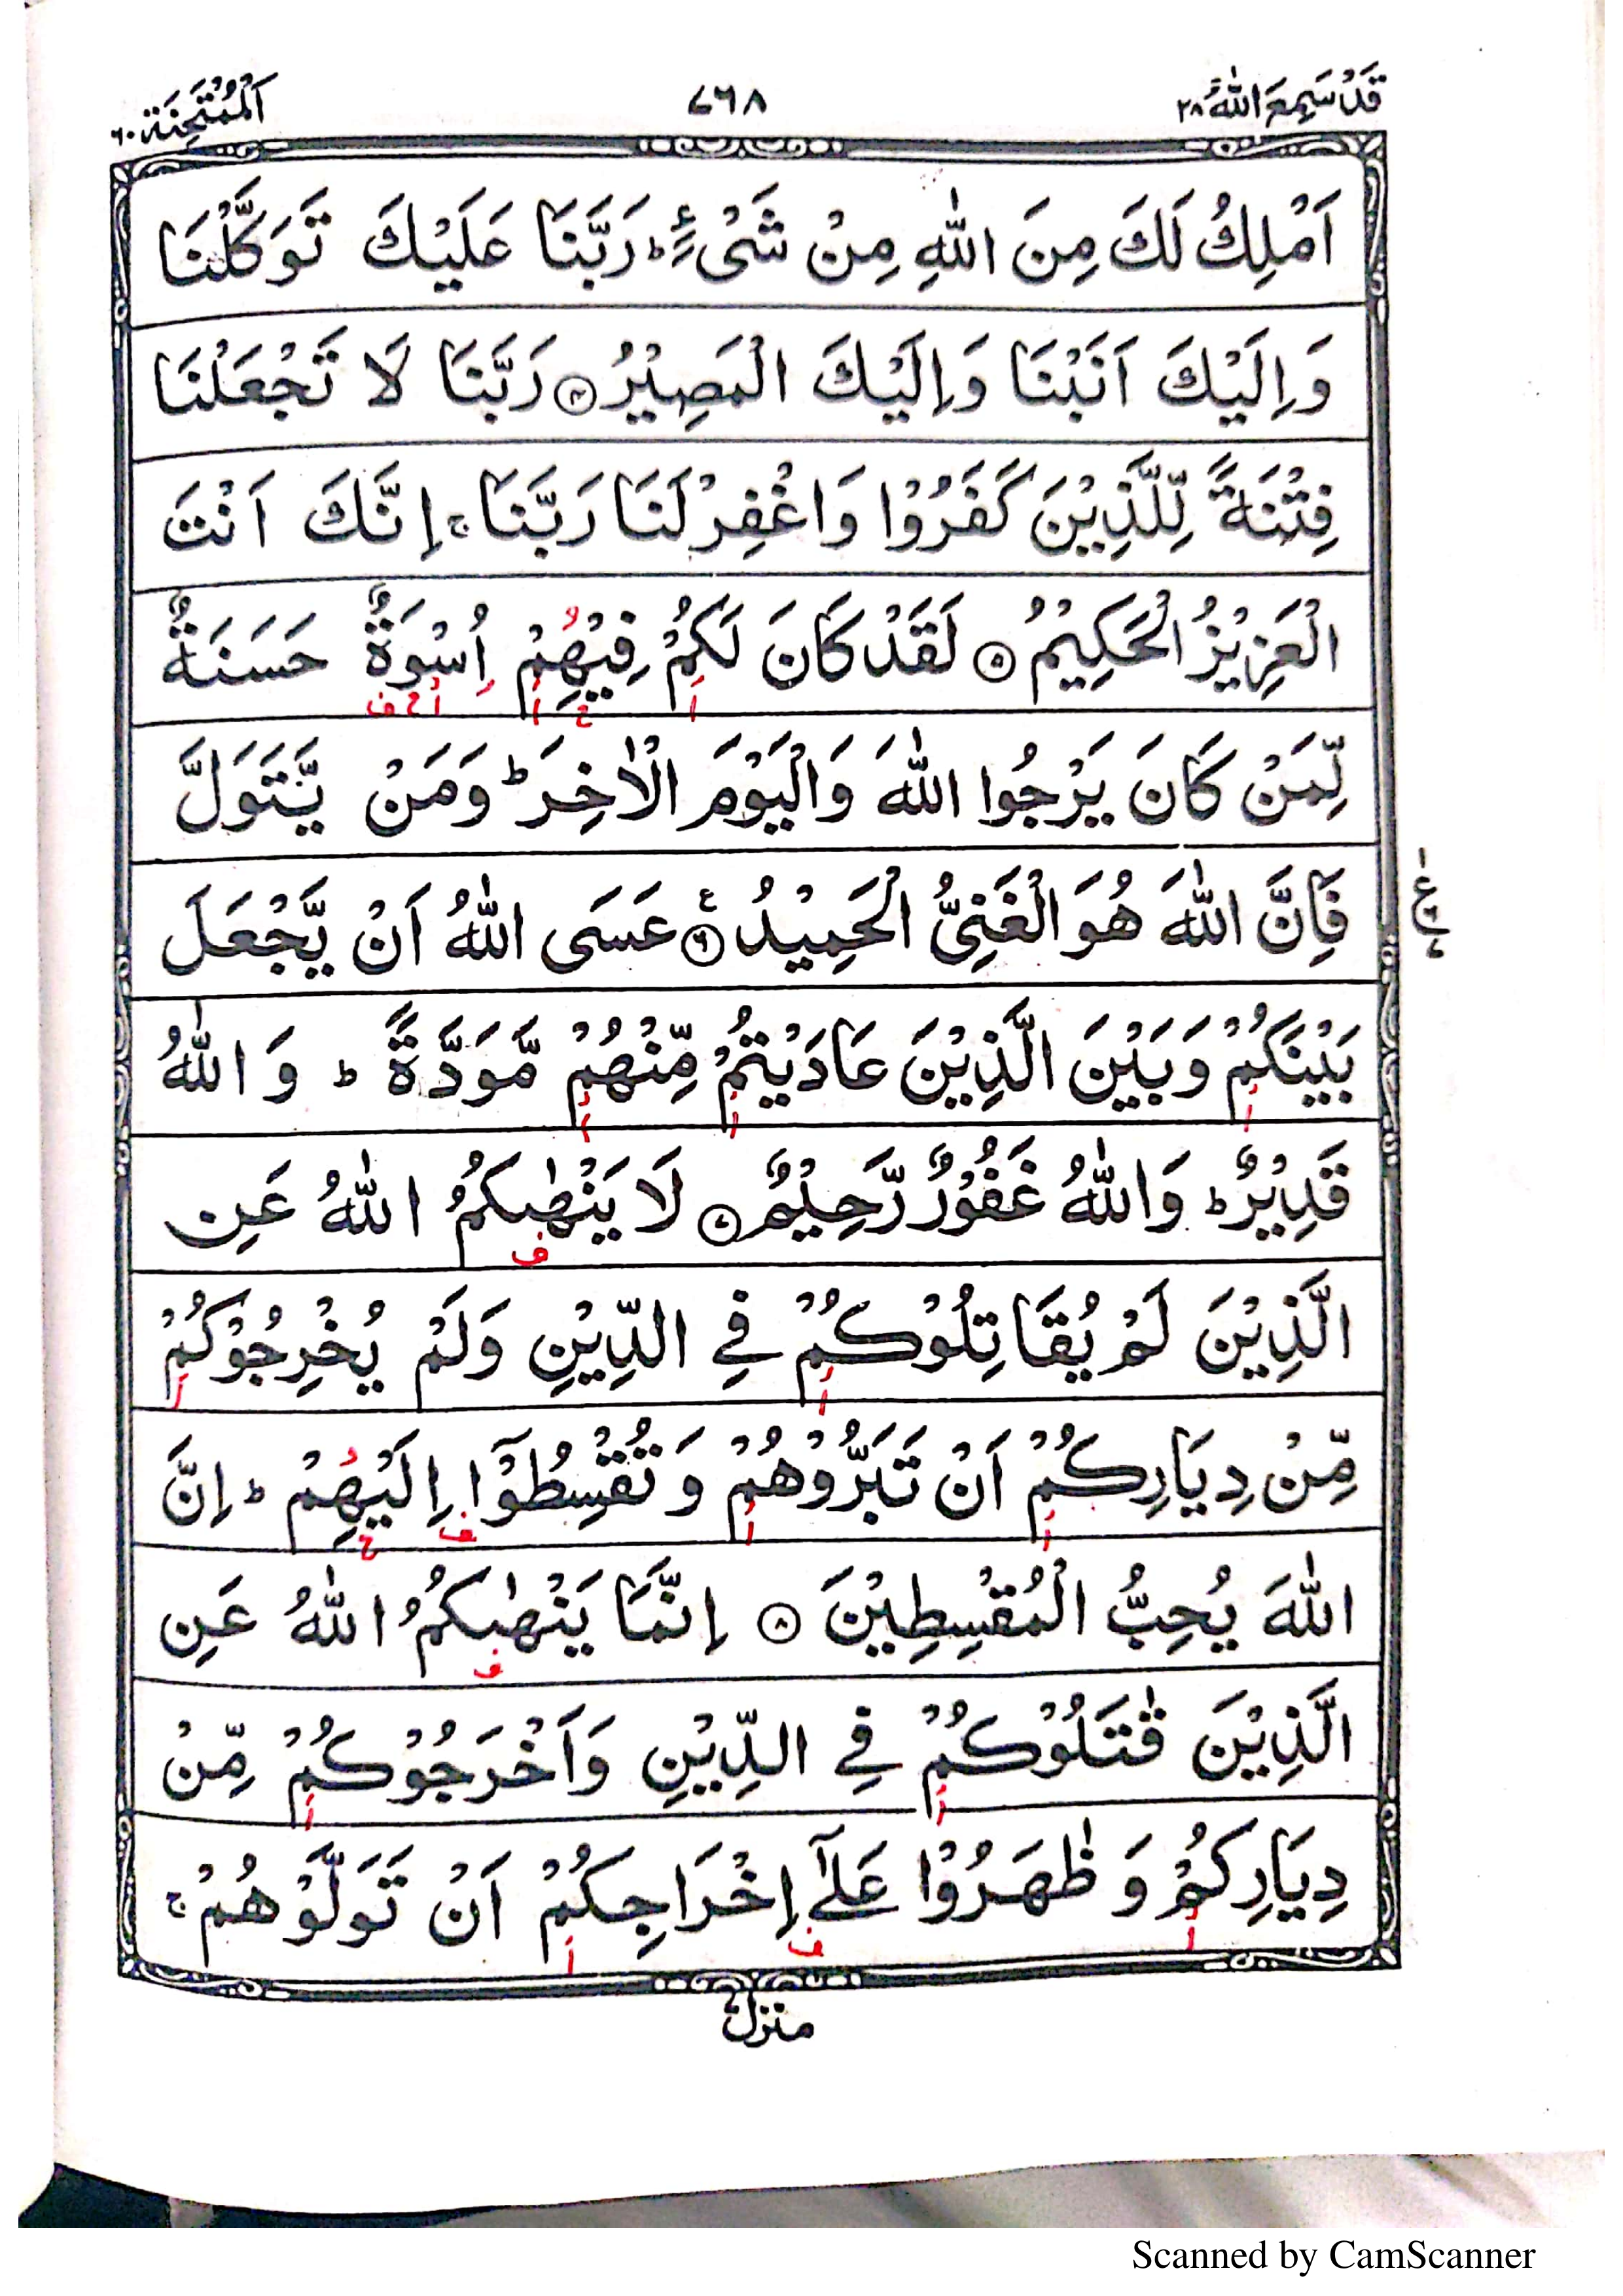 قَدْ سَمِعَ اللّٰهُ ٢٨
٧٦٨
اَلْمُمْتَحِنَة ٦٠
اَمْلِكُ لَكَ مِنَ اللّٰهِ مِنْ شَیْءٍ ؕ رَبَّنَا عَلَیْكَ تَوَكَّلْنَا
وَاِلَیْكَ اَنَبْنَا وَاِلَیْكَ الْمَصِیْرُ ۝٤ رَبَّنَا لَا تَجْعَلْنَا
فِتْنَةً لِّلَّذِیْنَ كَفَرُوْا وَاغْفِرْ لَنَا رَبَّنَا ۚ اِنَّكَ اَنْتَ
الْعَزِیْزُ الْحَكِیْمُ ۝٥ لَقَدْ كَانَ لَكُمْ فِیْهِمْ اِسْوَةٌ حَسَنَةٌ
ا ح ا ا ح ف
لِّمَنْ كَانَ یَرْجُوا اللّٰهَ وَالْیَوْمَ الْاٰخِرَ ؕ وَمَنْ یَّتَوَلَّ
فَاِنَّ اللّٰهَ هُوَ الْغَنِیُّ الْحَمِیْدُ ۝٦ ع عَسَی اللّٰهُ اَنْ یَّجْعَلَ
ع
بَیْنَكُمْ وَبَیْنَ الَّذِیْنَ عَادَیْتُمْ مِّنْهُمْ مَّوَدَّةً ؕ وَاللّٰهُ
ا ا ا
قَدِیْرٌ ؕ وَاللّٰهُ غَفُوْرٌ رَّحِیْمٌ ۝٧ لَا یَنْهٰىكُمُ اللّٰهُ عَنِ
ف
الَّذِیْنَ لَمْ یُقَاتِلُوْكُمْ فِی الدِّیْنِ وَلَمْ یُخْرِجُوْكُمْ
ا ا
مِّنْ دِیَارِكُمْ اَنْ تَبَرُّوْهُمْ وَتُقْسِطُوْۤا اِلَیْهِمْ ؕ اِنَّ
ا ا ف ح
اللّٰهَ یُحِبُّ الْمُقْسِطِیْنَ ۝٨ اِنَّمَا یَنْهٰىكُمُ اللّٰهُ عَنِ
ف
الَّذِیْنَ قٰتَلُوْكُمْ فِی الدِّیْنِ وَاَخْرَجُوْكُمْ مِّنْ
ا ا
دِیَارِكُمْ وَظٰهَرُوْا عَلٰۤی اِخْرَاجِكُمْ اَنْ تَوَلَّوْهُمْ ۚ
ا ف ا
منزل
Scanned by CamScanner